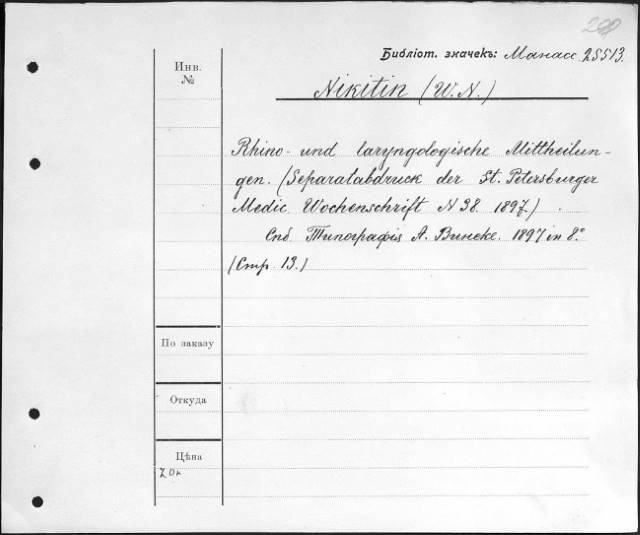 Библіот. значекъ: Манасс. 25513.
Инв.
№
Nikitin (W. N.)
Rhino- und laryngologische Mittheilun-
gen. (Separatabdruck der St. Petersburger
Medic. Wochenschrift N 38. 1897.)
Спб. Типографія А. Винеке. 1897 in 8.°
(Стр. 13.)
По заказу
Откуда
Цѣна